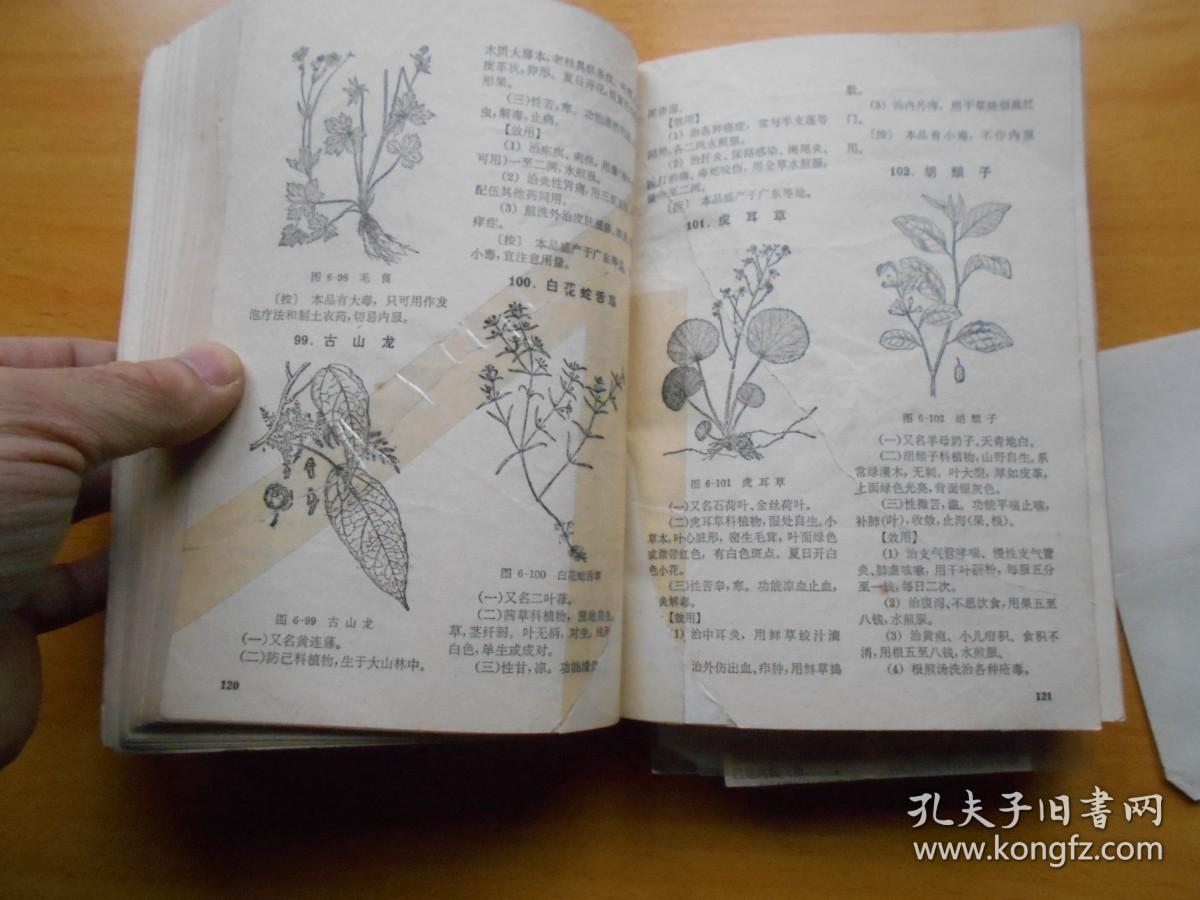 图 6-98 毛茛
〔按〕 本品有大毒，只可用作发
泡疗法和制土农药，切忌内服。
99．古山龙
图 6-99 古山龙
(一)又名黄连藤。
(二)防己科植物，生于大山林中。
120
木质大藤本，老枝具
皮革状，卵形，夏日开花，
形果。
(三)性苦，寒。功能
虫，解毒，止痛。
【效用】
(1) 治疟疾、痢疾，用
可用)一至二两，水煎服。
(2) 治炎性胃痛，用三
配伍其他药同用。
(3) 煎洗外治皮肤
痒症。
〔按〕 本品盛产于广东等地，
小毒，宜注意用量。
100．白花蛇舌草
图 6-100 白花蛇舌草
(一)又名二叶葎。
(二)茜草科植物，湿地自生。
草，茎纤弱。叶无柄，对生，
白色，单生或成对。
(三)性甘，凉。功能清
【效用】
(1) 治各种癌症，常与半支莲等
同用，各二两水煎服。
(2) 治肝炎、尿路感染、阑尾炎、
打伤痛、毒蛇咬伤，用全草水煎服，
至二两。
〔按〕 本品盛产于广东等地。
101．虎耳草
图 6-101 虎耳草
(一)又名石荷叶、金丝荷叶。
(二)虎耳草科植物，湿处自生。小
草本，叶心脏形，密生毛茸，叶面绿色
或微带红色，有白色斑点。夏日开白
色小花。
(三)性苦辛，寒。功能凉血止血，
炎解毒。
【效用】
(1) 治中耳炎，用鲜草绞汁滴
治外伤出血、痄肿，用鲜草捣
敷。
(3) 治内外痔，用干草烧烟熏肛
门。
〔按〕 本品有小毒，不作内服
用。
102．胡颓子
图 6-102 胡颓子
(一)又名羊母奶子、天青地白。
(二)胡颓子科植物，山野自生。系
常绿灌木，无刺。叶大型，厚如皮革，
上面绿色光亮，背面银灰色。
(三)性微苦，温。功能平喘止咳，
补肺(叶)，收敛，止泻(果、根)。
【效用】
(1) 治支气管哮喘、慢性支气管
炎、肺虚咳嗽，用干叶研粉，每服五分
至一钱，每日二次。
(2) 治腹泻、不思饮食，用果五至
八钱，水煎服。
(3) 治黄疸、小儿疳积、食积不
消，用根五至八钱，水煎服。
(4) 根煎汤洗治各种疮毒。
121
孔夫子旧书网
www.kongfz.com